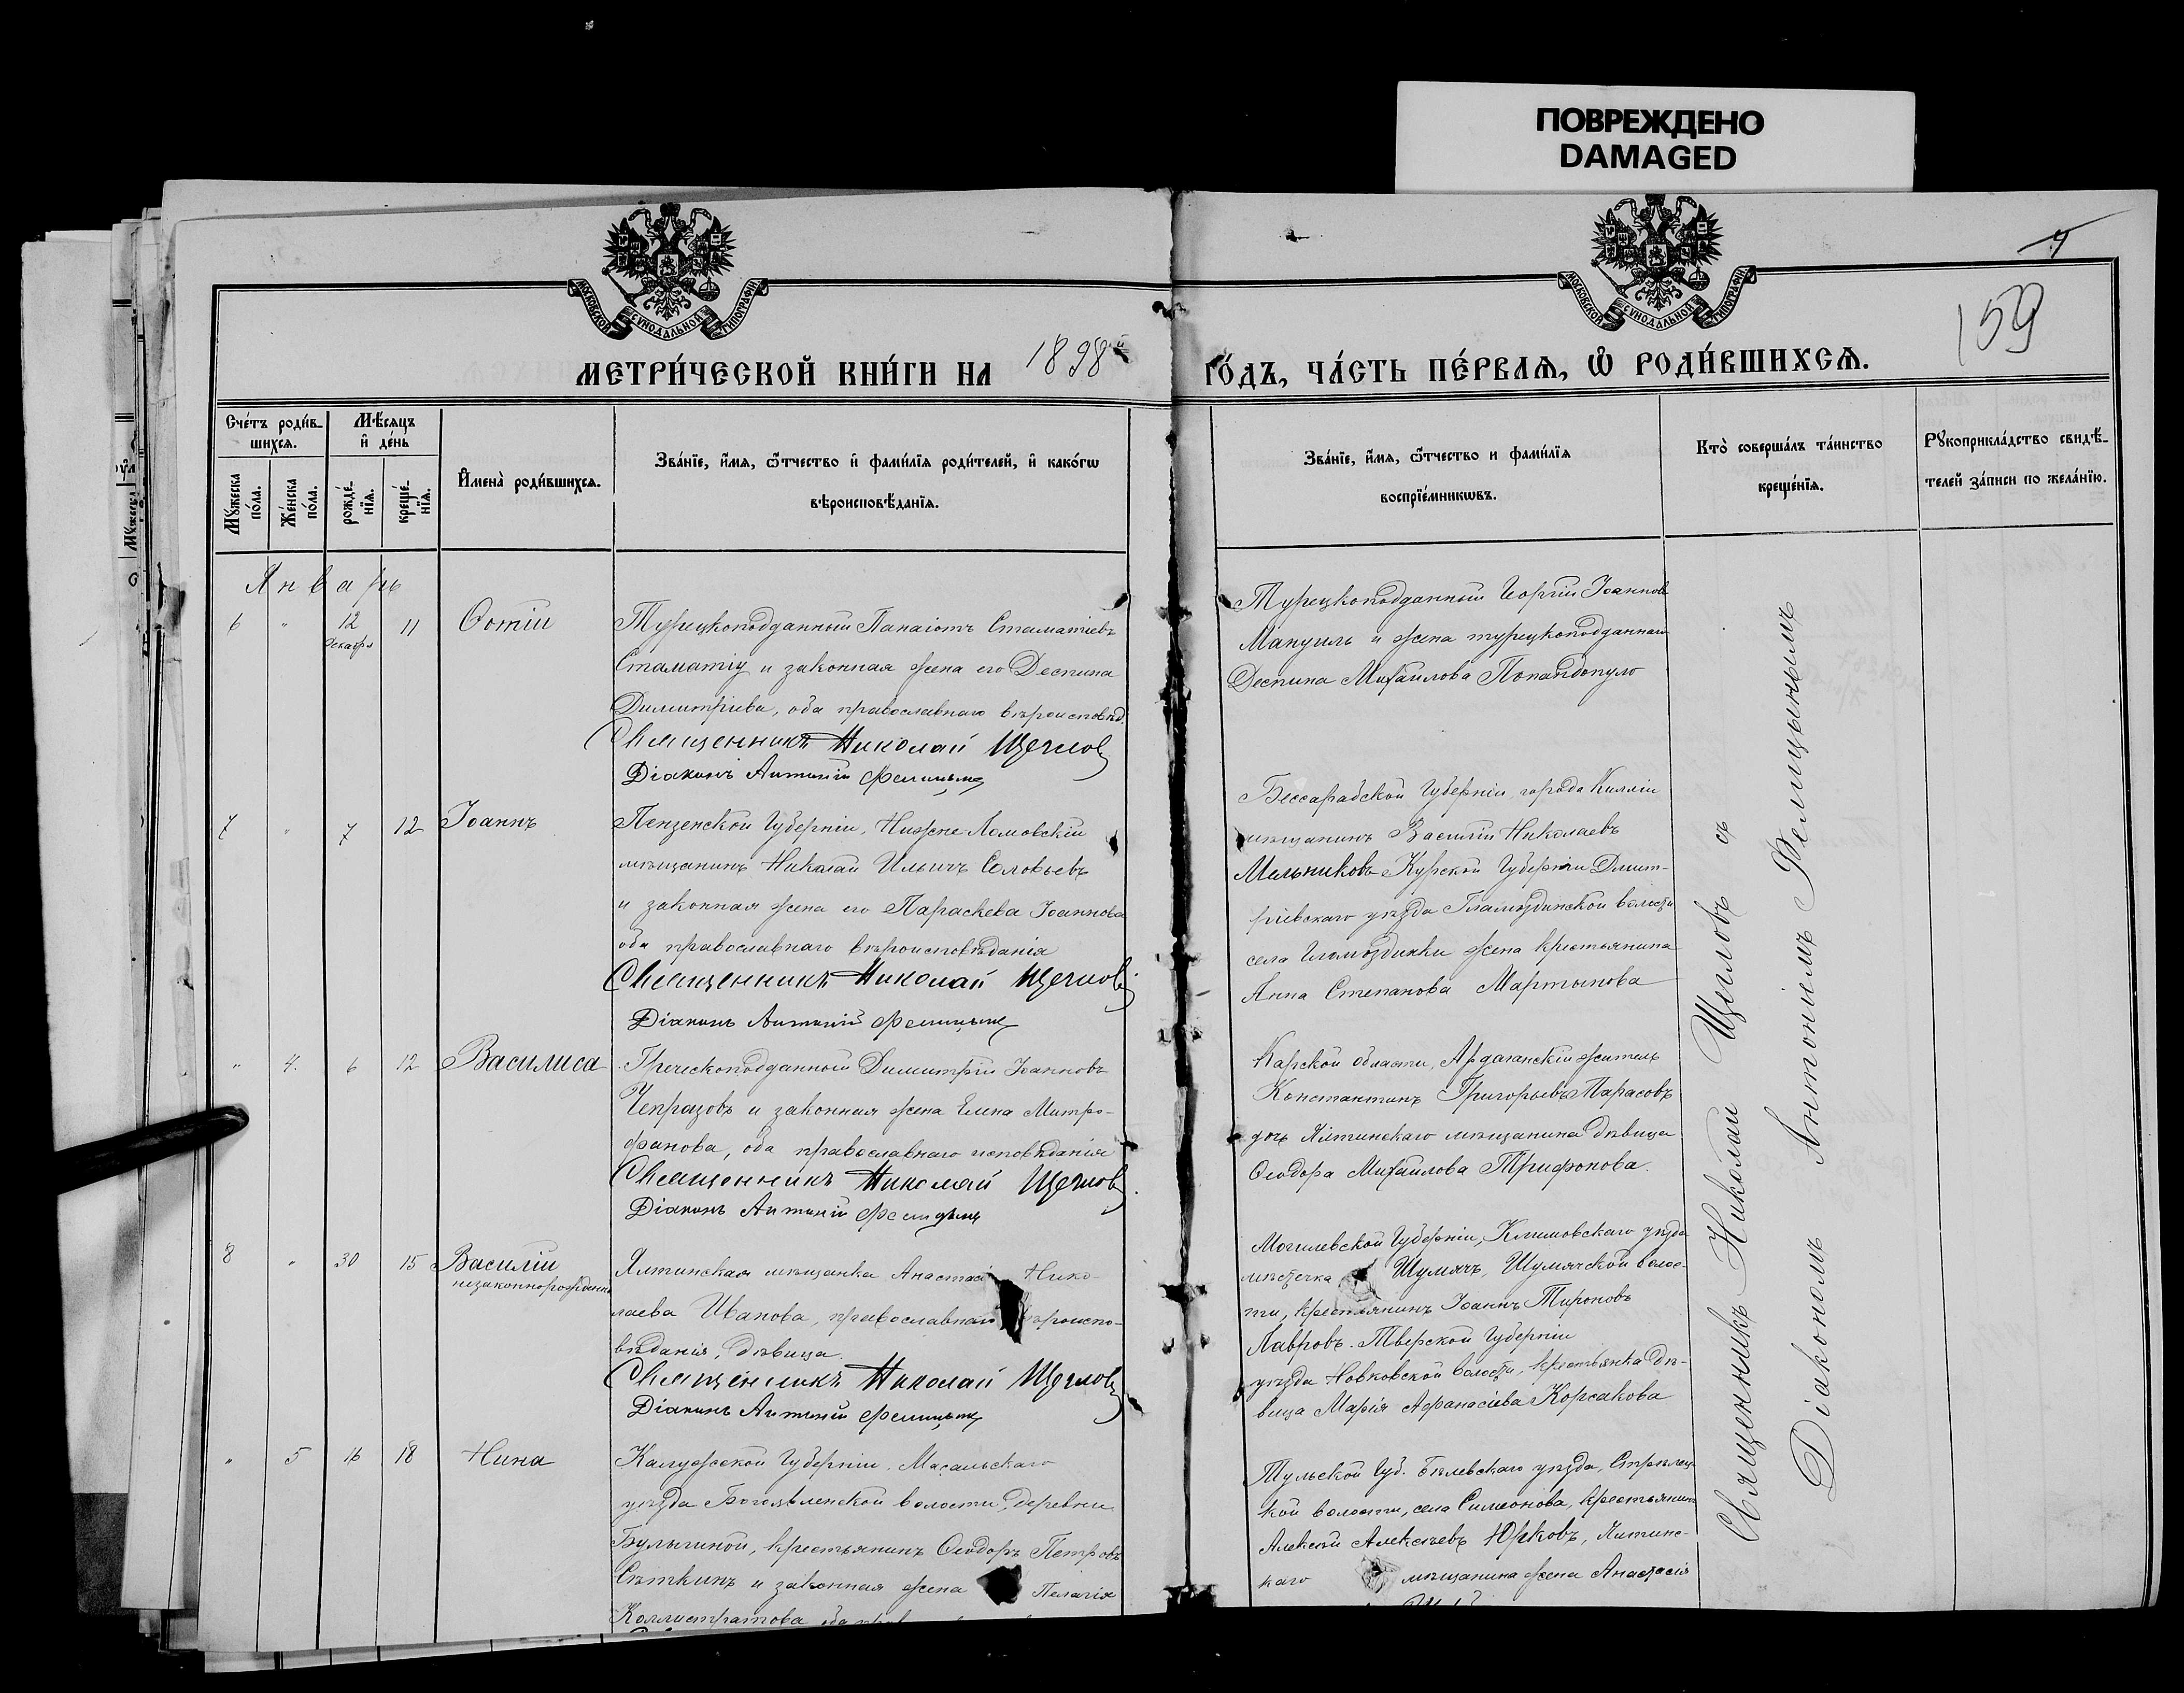 ПОВРЕЖДЕНО
DAMAGED
МОСКОВСКОЙ СѴНОДАЛЬНОЙ ТИПОГРАФІИ
МОСКОВСКОЙ СѴНОДАЛЬНОЙ ТИПОГРАФІИ
4
159
МЕТРИ́ЧЕСКОЙ КНИ́ГИ НА 1898й ГО́ДЪ, ЧА́СТЬ ПЕ́РВАѦ, Ѽ РОДИ́ВШИХСѦ.
Сче́тъ роди́в-
шихсѧ.
Мꙋ́жеска по́ла.
Же́нска по́ла.
Мѣ́сѧцъ
и҆ де́нь
рожде́-нїѧ.
креще́-нїѧ.
И҆мена̀ роди́вшихсѧ.
Зва́нїе, и҆́мѧ, ѻ҆́тчество и҆ фами́лїѧ роди́телей, и҆ како́гѡ
вѣроисповѣ́данїѧ.
Зва́нїе, и҆́мѧ, ѻ҆́тчество и фами́лїѧ
воспрїе́мникѡвъ.
Кто̀ соверша́лъ та́инство
креще́нїѧ.
Рꙋкоприкла́дство свидѣ́-
телей за́писи по жела́нїю.
Январь
6 " 12 декабря 11 Фотій
Турецкоподданный Панаіотъ Стаматіевъ
Стаматіу и законная жена его Деспина
Димитріева, оба православнаго вѣроисповѣд.
Священникъ Николай Щегловъ
Діаконъ Антоній Фелицынъ
Турецкоподданный Георгій Іоанновъ
Мануиль и жена турецкоподданнаго
Деспина Михаилова Попандопуло
7 " 7 12 Іоаннъ
Пензенской Губерніи, Нижне-Ломовскій
мѣщанинъ Николай Ильичъ Соловьевъ
и законная жена его Параскева Іоаннова
оба православнаго вѣроисповѣданія
Священникъ Николай Щегловъ
Діаконъ Антоній Фелицынъ
Бессарабской Губерніи города Киліи
мѣщанинъ Василій Николаевъ
Мельниковъ Курской Губерніи Дмит-
ріевскаго уѣзда Гламаздинской волости
села Гламаздинки жена крестьянина
Анна Степанова Мартынова
" 4. 6 12 Василиса
Греческоподданный Димитрій Іоанновъ
Чепразовъ и законная жена Елена Митро-
фанова, оба православнаго исповѣданія
Священникъ Николай Щегловъ
Діаконъ Антоній Фелицынъ
Карской области, Ардаганскій житель
Константинъ Григорьевъ Парасовъ
дочь Ялтинскаго мѣщанина дѣвица
Ѳеодора Михаилова Трифонова.
8 " 30 15 Василій
незаконнорожденн
Ялтинская мѣщанка Анастасі Нико-
лаева Иванова, православнаго вѣроиспо-
вѣданія, дѣвица.
Священникъ Николай Щегловъ
Діаконъ Антоній Фелицынъ
Могилевской Губерніи, Климовскаго уѣзда
мѣстечка Шумячъ, Шумячской волос-
ти, крестьянинъ Іоаннъ Тироновъ
Лавровъ. Тверской Губерніи
уѣзда Новковской волости, крестьянка дѣ-
вица Марія Афанасіева Корсакова
" 5 16 18 Нина
Калужской Губерніи, Масальскаго
уѣзда Богоявленской волости, деревни
Булычиной, крестьянинъ Ѳеодоръ Петровъ
Сѣткинъ и законная жена Пелагія
Коллистратова оба
Тульской Губ. Бѣлевскаго уѣзда, Стрѣлец-
кой волости, села Симонова, крестьянинъ
Алексѣй Алексѣевъ Юрковъ, Ялтинс-
каго мѣщанина жена Анастасія
Священникъ Николай Щегловъ съ
Діакономъ Антоніемъ Фелицынымъ